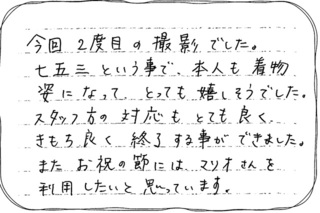 今回 2度目の撮影でした。
七五三という事で、本人も着物
姿になって、とっても嬉しそうでした。
スタッフ方の対応もとても良く、
きもち良く終了する事ができました。
またお祝の節には、マリオさんを
利用したいと思っています。